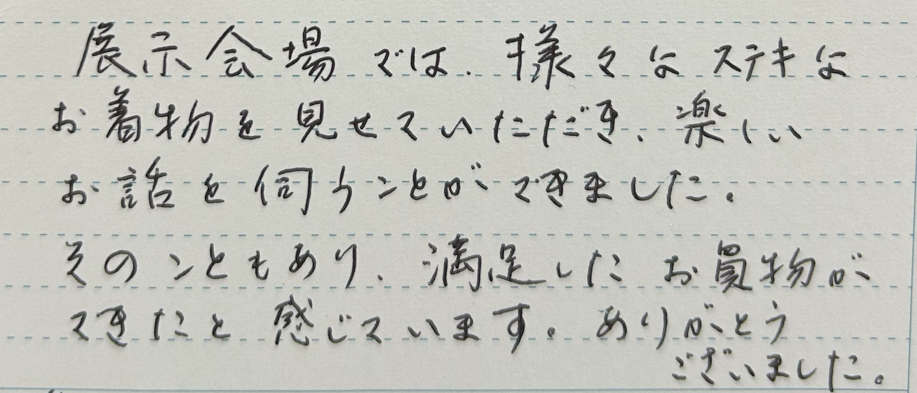 展示会場では、様々なステキな
お着物を見せていただき、楽しい
お話を伺うことができました。
そのこともあり、満足したお買物が
できたと感じています。ありがとう
ございました。